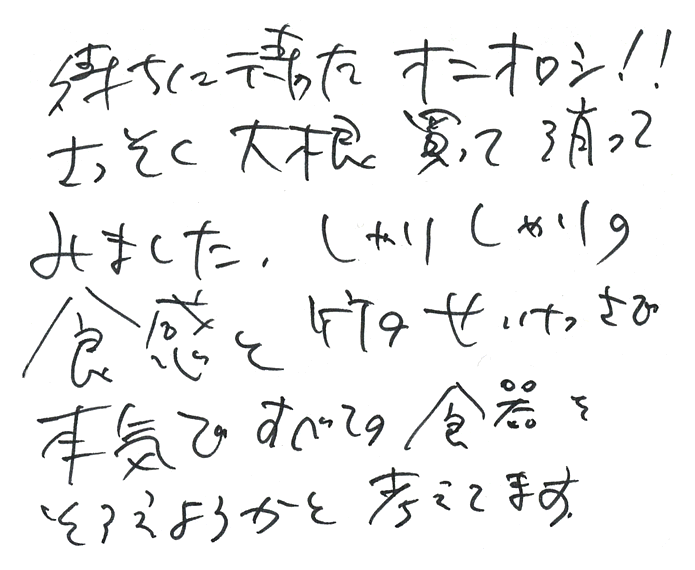 待ちに待った オニオロシ!!
さっそく 大根 買って 消って
みました. しゃりしゃりの
食感と 竹のせいけつさで
本気で すべての 食器を
そろえようかと 考えてます.